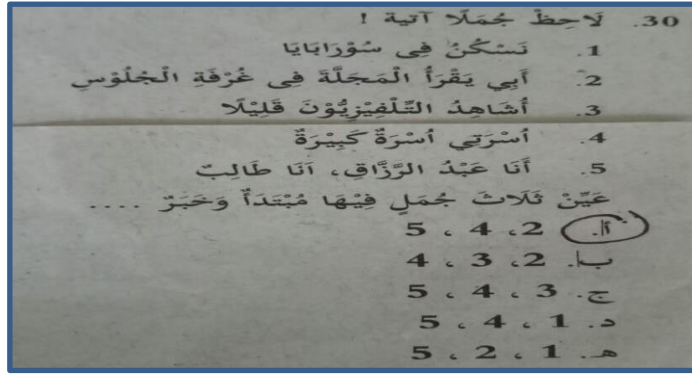 30. لَاحِظْ جُمَلًا آتية !
1. نَسْكُنُ فِى سُوْرَابَايَا
2. أَبِي يَقْرَأُ الْمَجَلَّةَ فِى غُرْفَةِ الْجُلُوْسِ
3. أُشَاهِدُ التِّلْفِيْزِيُّوْنَ قَلِيْلًا
4. اُسْرَتِي اُسْرَةٌ كَبِيْرَةٌ
5. أَنَا عَبْدُ الرَّزَّاقِ، اَنَا طَالِبٌ
عَيِّنْ ثَلَاثَ جُمَلٍ فِيْهَا مُبْتَدَأٌ وَخَبَرٌ ....
أ. 2، 4 ، 5
ب. 2، 3 ، 4
ج. 3 ، 4 ، 5
د. 1 ، 4 ، 5
هـ. 1 ، 2 ، 5